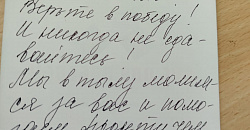 Верьте в победу!
И никогда не сда-
вайтесь!
Мы в тылу молим-
ся за вас и помо-
гаем